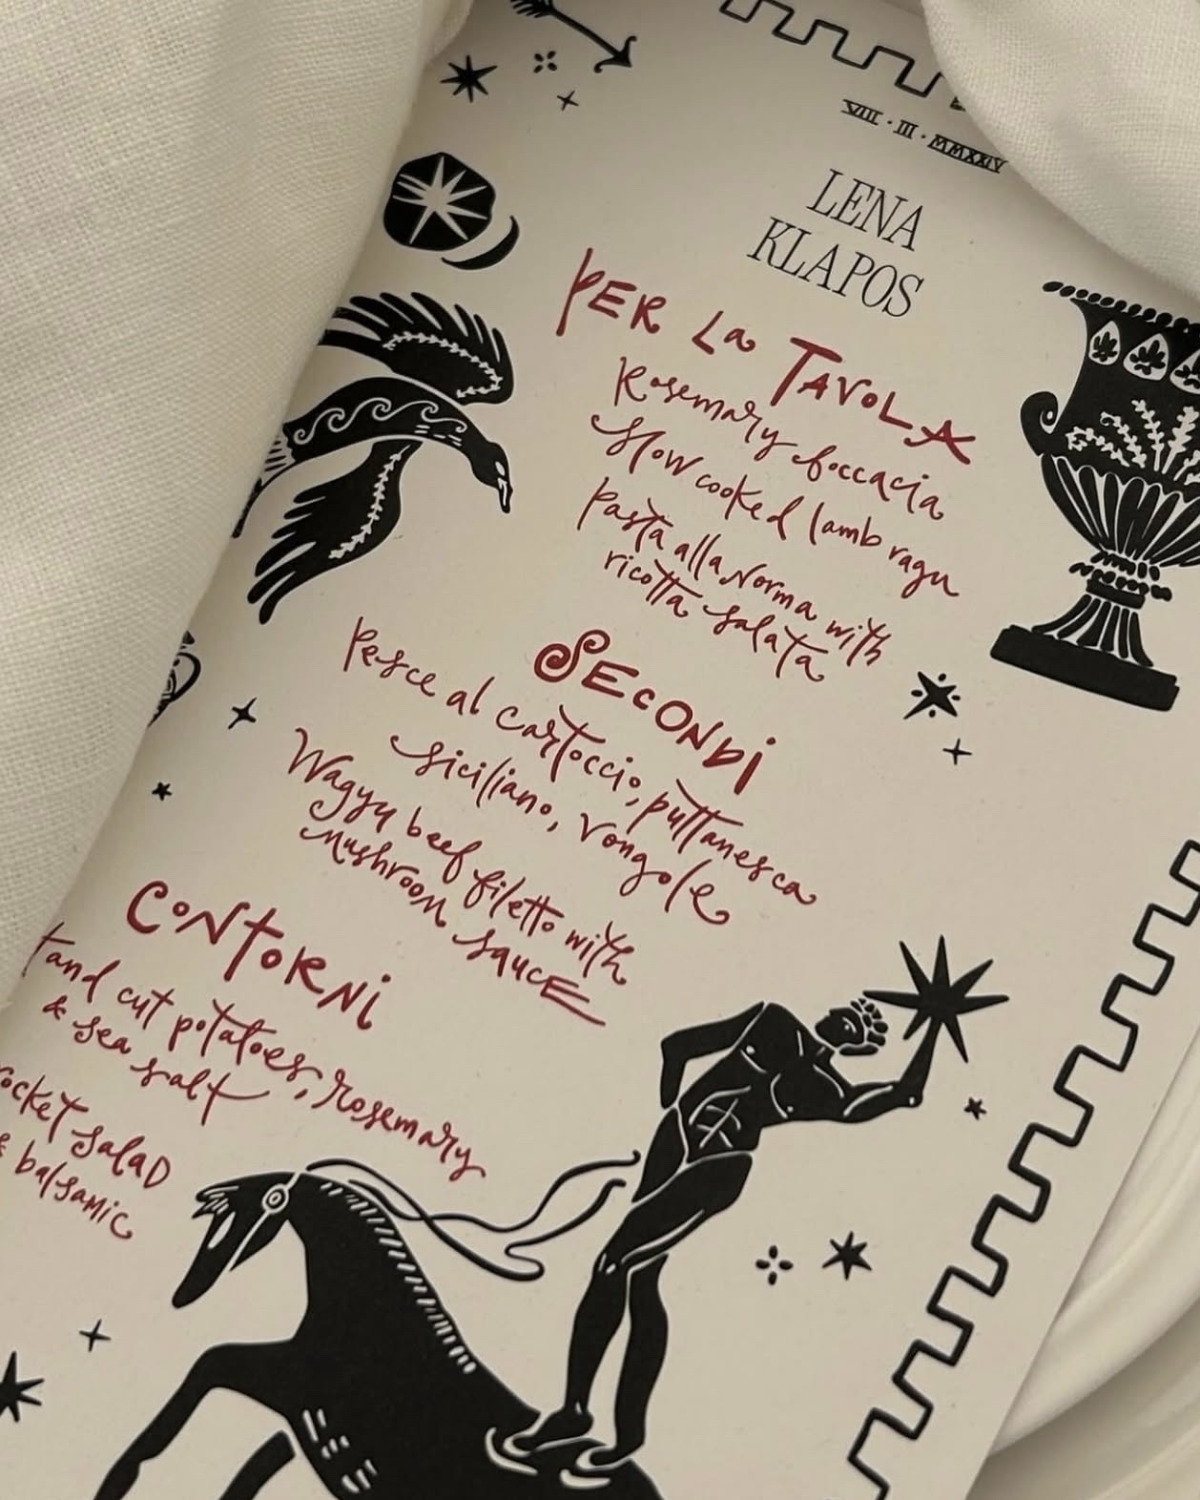 VIII · III · MMXXIV
LENA
KLAPOS
PER La TAVOLA
Rosemary foccacia
Slow cooked lamb ragu
Pasta alla Norma with
ricotta salata
SECONDI
Pesce al cartoccio, puttanesca
siciliano, vongole
Wagyu beef filetto with
Mushroom sauce
CONTORNI
cut potatoes, rosemary
& sea salt
salad
balsamic